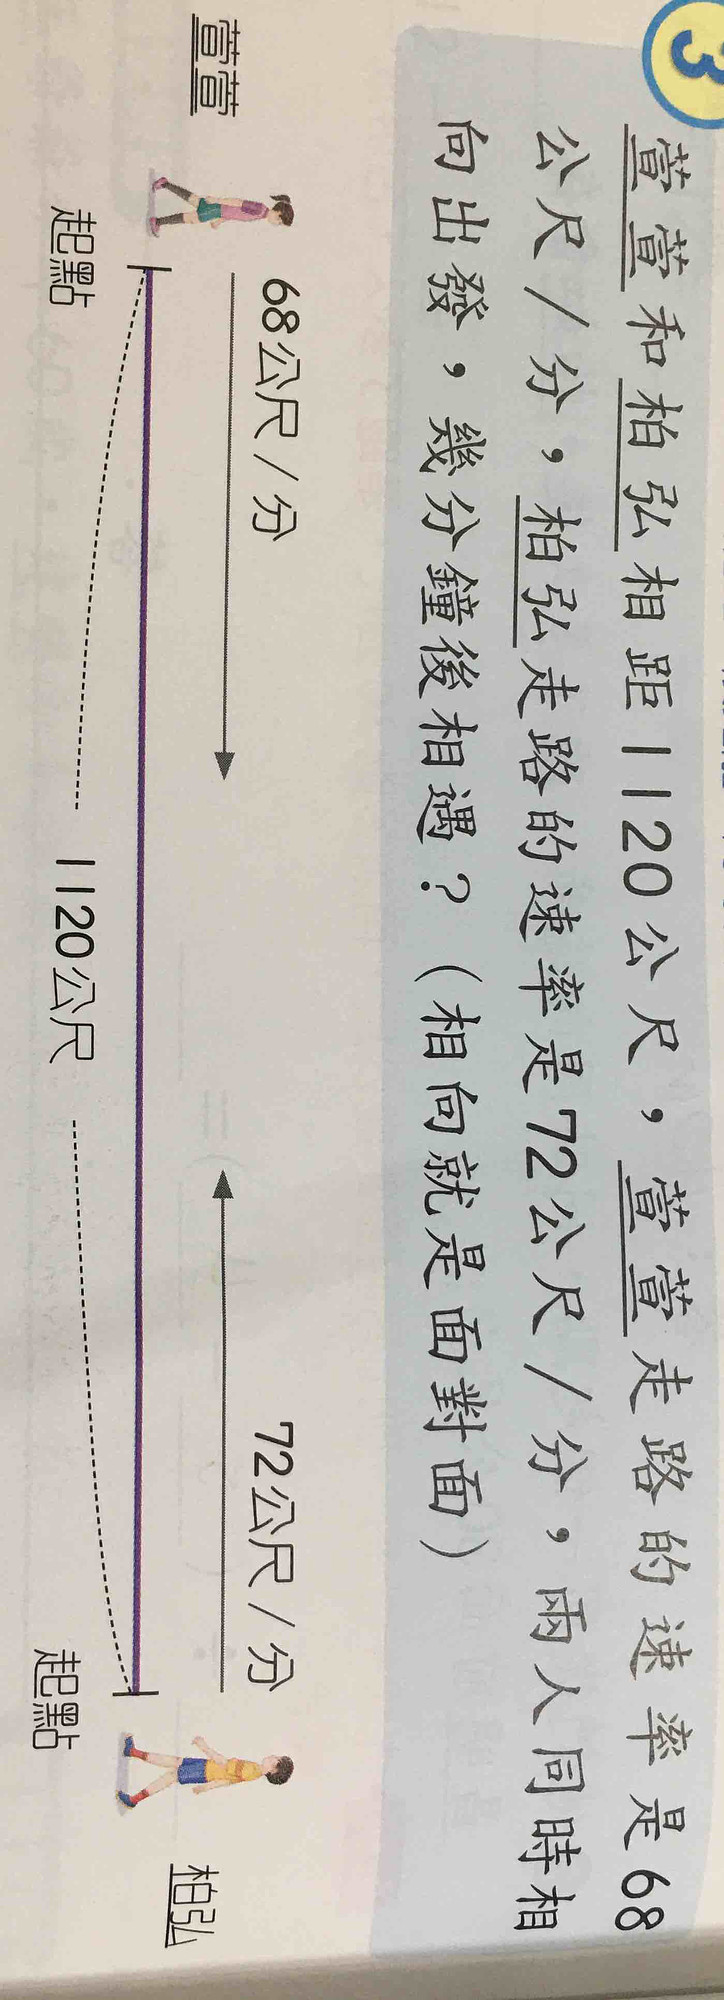 3
萱萱和柏弘相距1120公尺，萱萱走路的速率是68
公尺/分，柏弘走路的速率是72公尺/分，兩人同時相
向出發，幾分鐘後相遇？（相向就是面對面）
68公尺/分
72公尺/分
萱萱
柏弘
起點
起點
1120公尺